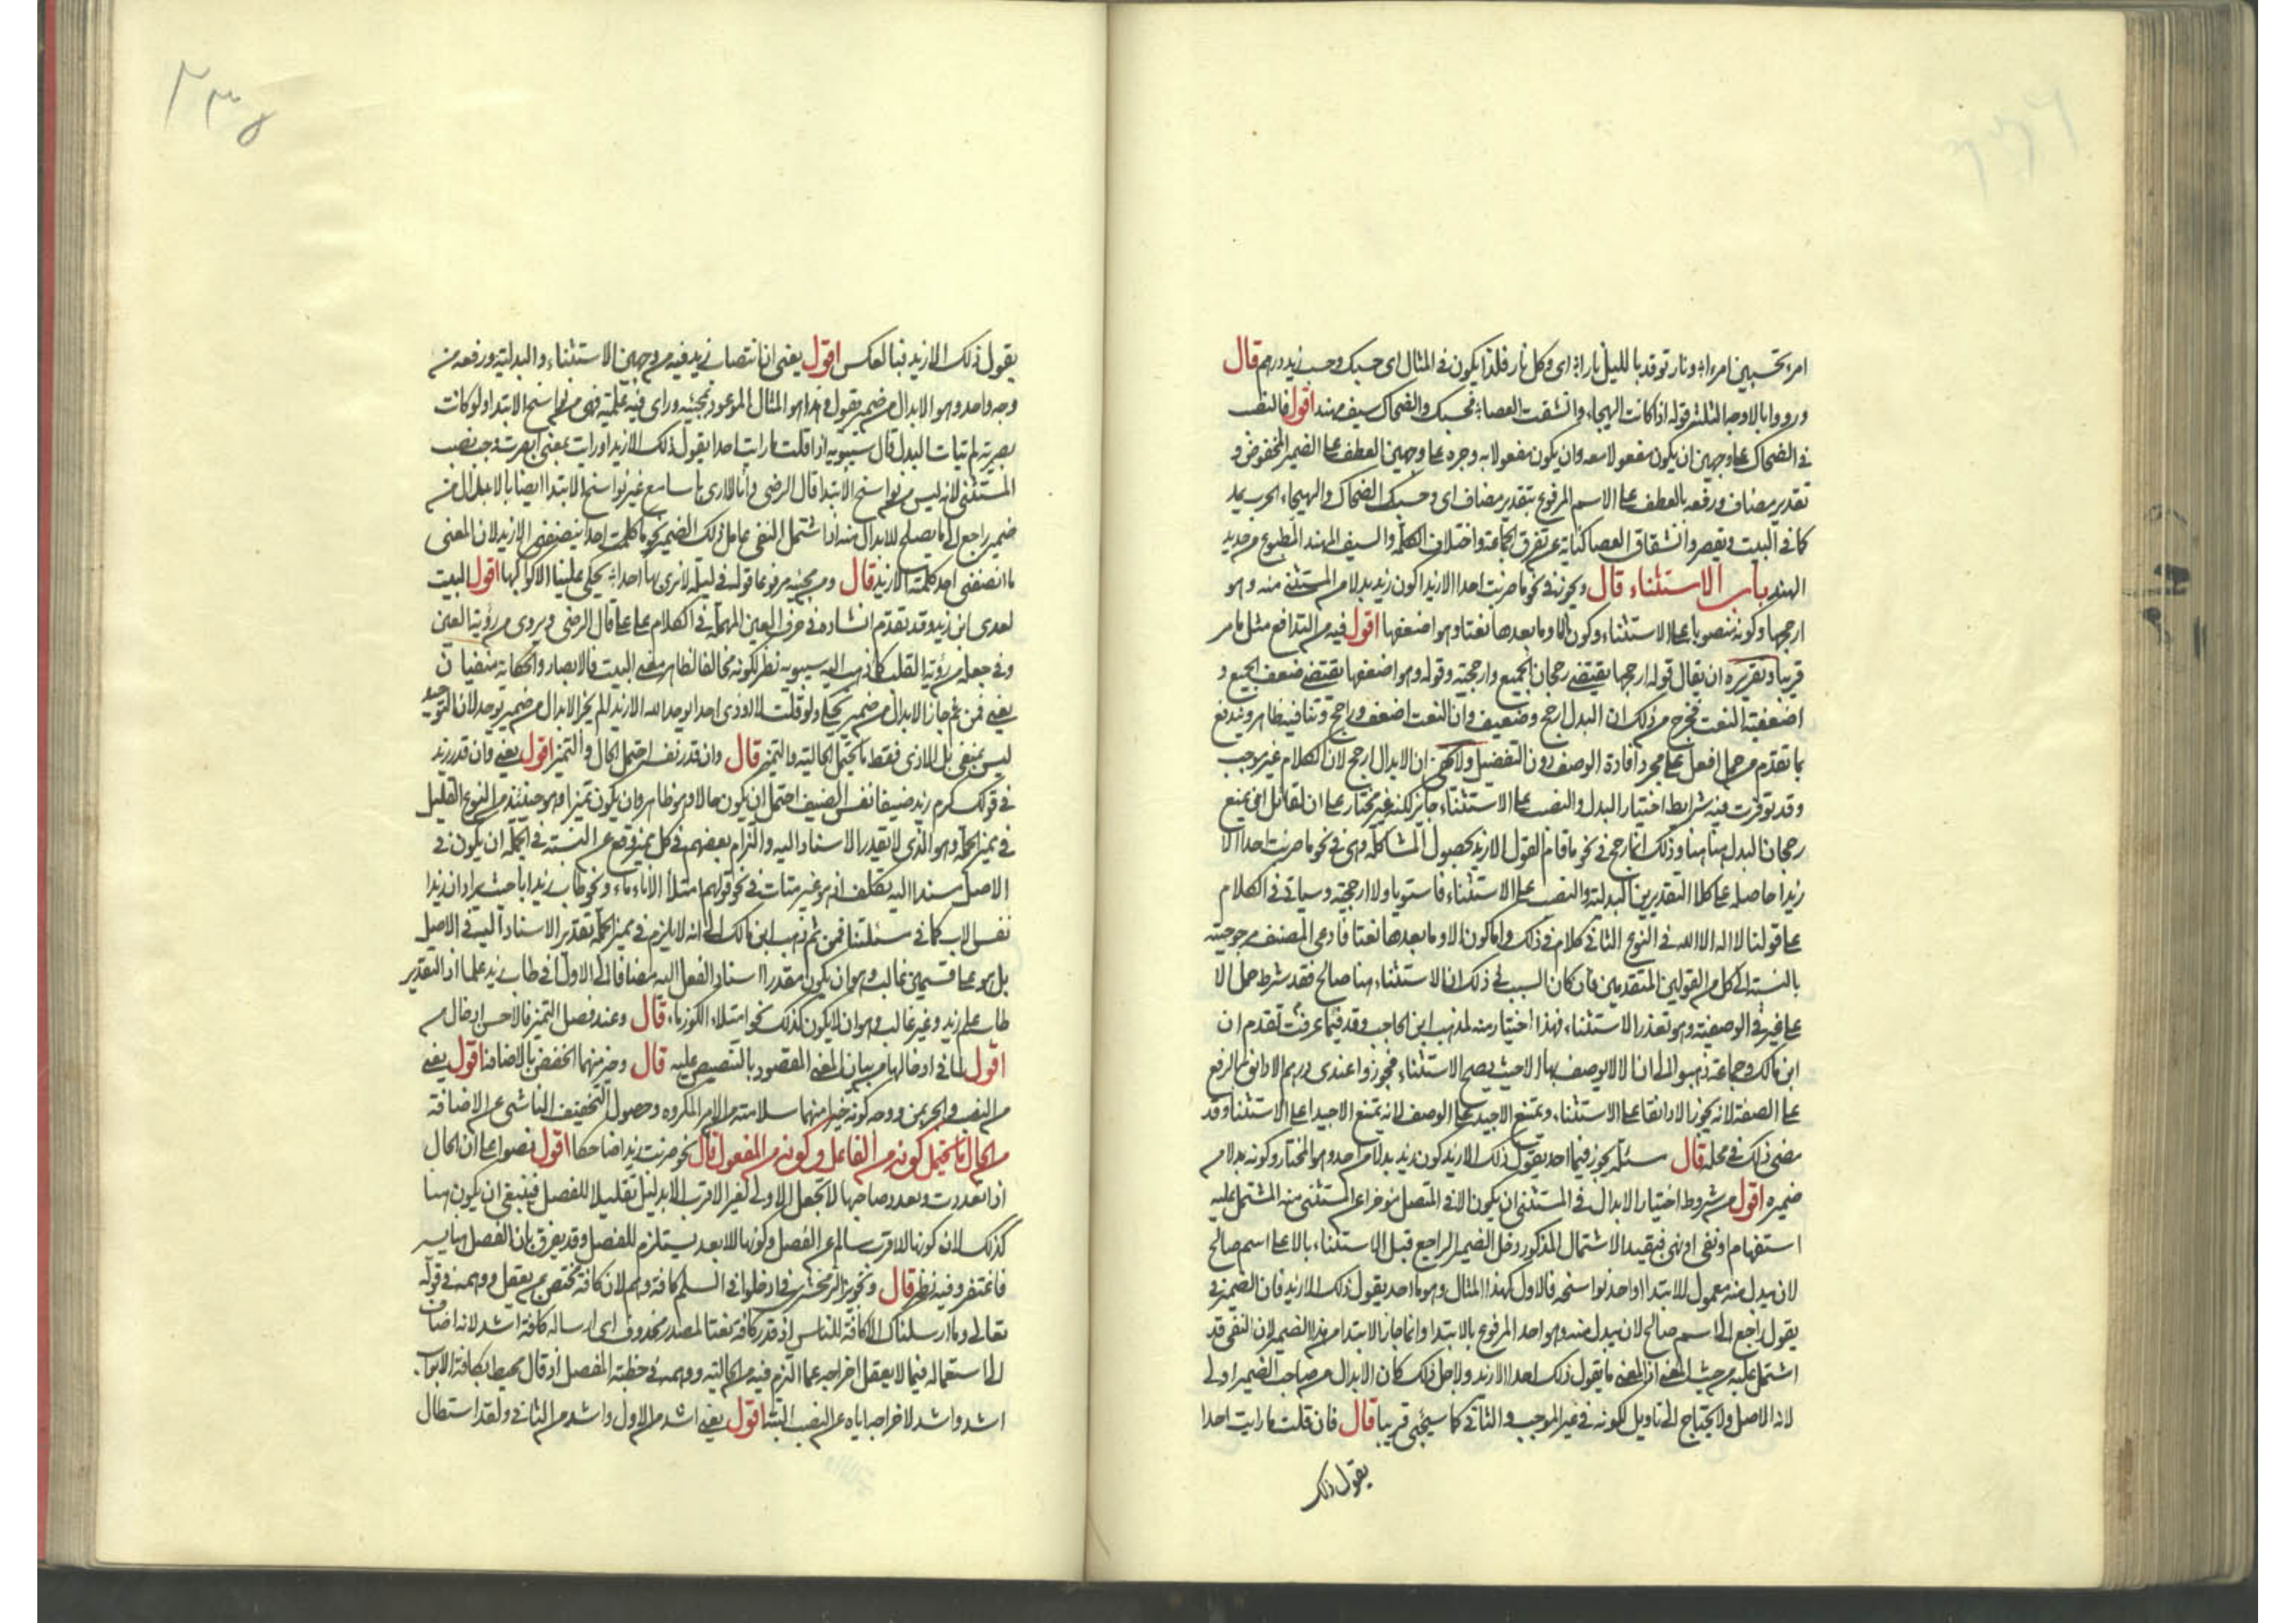 امرء تحسبين امراء ونار توقد بالليل نارا اى وكل نار فلذا يكون فى المثال اى حسبك وحسب زيد درهم قال
ورووا بالاوجه الثلثه قوله اذا كانت الهيجاء وانشقت العصا فحسبك والضحاك سيف مهند اقول فالنصب
فى الضحاك على وجهين ان يكون مفعولا معه وان يكون مفعولا به وجره على وجهين العطف على الضمير المخفوض و
تقدير مضاف ورفعه بالعطف على الاسم المرفوع بتقدير مضاف اى وحسبك الضحاك والهيجاء الحرب يمد
كما فى البيت ويقصر وانشقاق العصا كناية عن تفرق الجماعة واختلاف الكلمة والسيف المهند المطبوع من حديد
الهند باب الاستثناء قال ويجوز فى نحو ما ضربت احدا الا زيدا كون زيد بدلا من المستثنى منه وهو
ارجحها وكونه منصوبا على الاستثناء وكون الا وما بعدها نعتا وهو اضعفها اقول فيه من التدافع مثل ما مر
قريبا وتقريره ان يقال قوله ارجحها يقتضى رجحان الجميع وارجحيته وقوله وهو اضعفها يقتضى ضعف الجميع و
اضعفية النعت فخرج من ذلك ان البدل ارجح وضعيف وان النعت اضعف وراجح وتنافيه ظاهر ويندفع
بما تقدم من حمل افعل على مجرد افادة الوصف دون التفضيل ان الابدال ارجح لان الكلام غير موجب
وقد توفرت فيه شرايط اختيار البدل والنصب على الاستثناء جايز لكنه غير مختار على ان لقائل ان يمنع
رجحان البدل هنا وذلك انما رجح فى نحو ما قام القوم الا زيد لحصول المشاكلة وهى فى نحو ما ضربت احدا الا
زيدا حاصلة على كلا التقديرين البدلية والنصب على الاستثناء فاستويا ولا ارجحية وسياتى فى الكلام
على قولنا لا اله الا الله فى النوع الثانى كلام فى ذلك واما كون الا وما بعدها نعتا فادعى المصنف مرجوحيته
بالنسبة الى كل من القولين المتقدمين فان كان السبب فى ذلك ان الاستثناء هنا صالح فقد شرط حمل الا
على غير فى الوصفية وهو تعذر الاستثناء فهذا اختيار منه لمذهب ابن الحاجب وقد عرفت فيما تقدم ان
ابن مالك وجماعة ذهبوا الى ان الا لا يوصف بها الا حيث يصح الاستثناء فجوزوا عندى درهم الا دانق بالرفع
على الصفة لانه يجوز الا دانقا على الاستثناء ويمتنع الا جيد على الوصف لانه يمتنع الا جيدا على الاستثناء وقد
مضى ذلك فى محله قال مسئلة يجوز فى ما احد يقول ذلك الا زيد كون زيد بدلا من احد وهو المختار وكونه بدلا من
ضميره اقول من شروط اختيار الابدال فى المستثنى ان يكون الا فى المتصل مؤخرا عن المستثنى منه المشتمل عليه
استفهام او نفى او نهى فبقيد الاشتمال المذكور دخل الضمير الراجع قبل الاستثناء بالا على اسم صالح
لان يبدل منه معمول للابتدا او احد نواسخه فالاول كهذا المثال وهو ما احد يقول ذلك الا زيد فان الضمير فى
يقول راجع الى اسم صالح لان يبدل منه وهو احد المرفوع بالابتدا وانما جاز الابدال من هذا الضمير لان النفى قد
اشتمل عليه من حيث المعنى اذ المعنى ما يقول ذلك احد الا زيد ولاجل ذلك كان الابدال من صاحب الضمير اولى
لانه الاصل ولا يحتاج الى تاويل لكونه فى غير الموجب والثانى كما سيجئ قريبا قال فان قلت ما رايت احدا
يقول ذلك
٢٣٥
يقول ذلك الا زيد فبالعكس اقول يعنى ان انتصاب زيد فيه من وجهين الاستثناء والبدلية ورفعه من
وجه واحد وهو الابدال من ضمير يقول وهذا هو المثال الموعود بمجيئه وراى فيه علمية فهى من نواسخ الابتدا ولو كانت
بصرية لم يتات البدل قال سيبويه اذا قلت ما رايت احدا يقول ذلك الا زيدا ورايت بمعنى ابصرت وجب نصب
المستثنى لانه ليس من نواسخ الابتدا قال الرضى وانا لا ارى باسا مع غير نواسخ الابتدا ايضا بالابدال من
ضمير راجع الى ما يصلح للابدال منه اذا شتمل النفى عامل ذلك الضمير نحو ما كلمت احدا ينصفنى الا زيد لان المعنى
ما انصفنى احد كلمته الا زيد قال ومن مجيئه مرفوعا قوله فى ليلة لا نرى بها احدا يحكى علينا الا كواكبها اقول البيت
لعدى ابن زيد وقد تقدم انشاده فى حرف العين المهملة فى الكلام على على قال الرضى ويروى من رؤية العين
وفى جعله من رؤية القلب كما ذهب اليه سيبويه نظر لكونه مخالفا لظاهر معنى البيت فالابصار والحكاية منفيان
يعنى فمن ثم جاز الابدال من ضمير يحكى ولو قلت لا اوذى احدا يوحد الله الا زيدا لم يجز الابدال من ضمير يوحد لان التوحيد
ليس بمنفى بل الاذى فقط ما يحتمل الحالية والتميز قال وان قدر نفسه احتمل الحال والتميز اقول يعنى وان قدر زيد
فى قولك كرم زيد ضيفا نفس الضيف احتمل ان يكون حالا وهو ظاهر وان يكون تميزا وهو حينئذ من النوع القليل
فى تميز الجملة وهو الذى لا يقدر الاسناد اليه والتزام بعضهم فى كل تميز وقع عن النسبة فى الجملة ان يكون فى
الاصل مسندا اليه بتكلف اذ هو غير متات فى نحو قولهم امتلأ الاناء ماء ونحو طاب زيد ابا حيث يراد ان زيدا
نفس الاب كما فى مسئلتنا فمن ثم ذهب ابن مالك الى انه لا يلزم فى تميز الجملة تقدير الاسناد اليه فى الاصل
بل هو على قسمين غالب وهو ان يكون مقدرا اسناد الفعل اليه مضافا الى الاول فى طاب زيد علما اذ التقدير
طاب علم زيد وغير غالب وهو ان لا يكون كذلك نحو امتلاء الكوز ماء قال وعند فصل التميز فالاحسن ادخال من
اقول لما فى ادخالها من بيان المعنى المقصود بالتنصيص عليه قال وخير منهما الخفض بالاضافة اقول يعنى
من النصب والجر بمن ووجه كونه خيرا منهما سلامته من الامر المكروه وحصول التخفيف الناشئ عن الاضافة
من الحال ما يحتمل كونه من الفاعل وكونه من المفعول قال نحو ضربت زيدا ضاحكا اقول نصوا على ان الحال
اذا تعددت وتعدد صاحبها لا تجعل الاولى لغير الاقرب الا بدليل تقليلا للفصل فينبغى ان يكون هنا
كذلك لان كونها للاقرب سالم عن الفصل وكونها للابعد يستلزم للفصل وقد يفرق بان الفصل هنا يسير
فاغتفر وفيه نظر قال وتجويز الزمخشرى فى ادخلوا فى السلم كافة وهم لان كافة مختص بمن يعقل ووهمه فى قوله
تعالى وما ارسلناك الا كافة للناس اذ قدر كافة نعتا لمصدر محذوف اى ارساله كافة اشد لانه اضاف
الى استعماله فيما لا يعقل اخراجه عما التزم فيه من الحالية ووهمه فى خطبة المفصل اذ قال محيط بكافة الابواب
اشد واشد لاخراجه اياه عن النصب البتة اقول يعنى اشد من الاول واشد من الثانى ولقد استطال